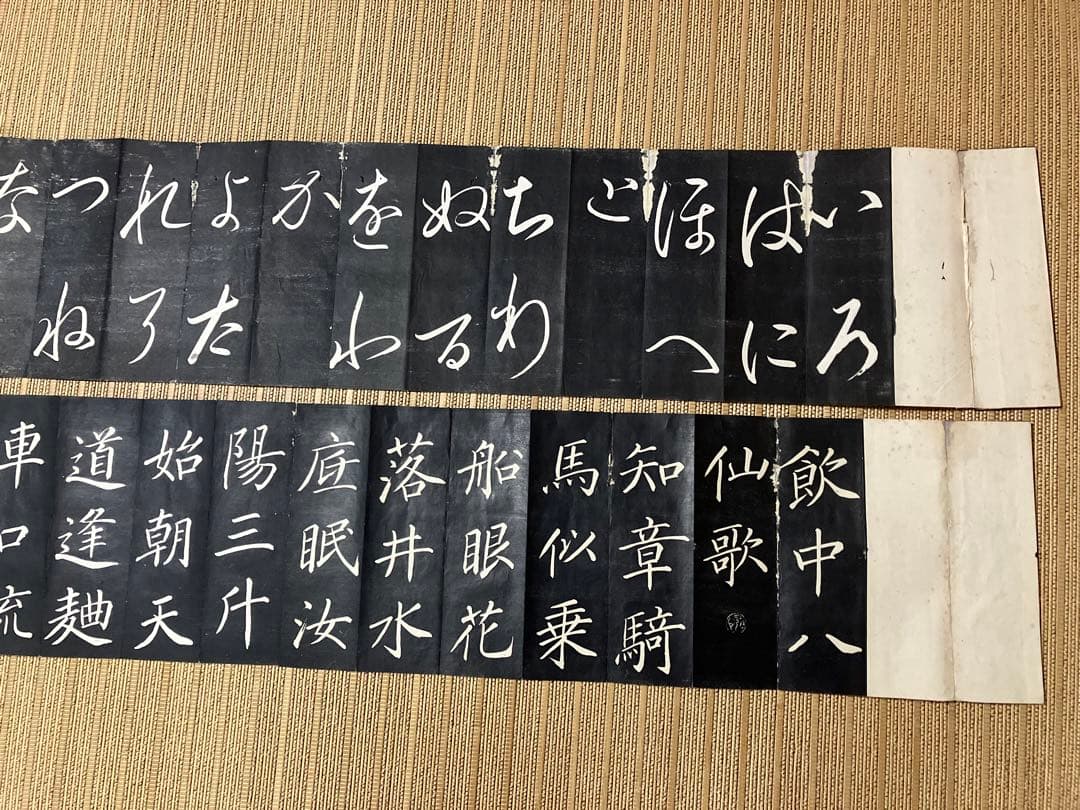 いろ
はに
ほへ
と
ちり
ぬる
をわ
か
よた
れそ
つね
な
飲中八
仙歌
知章騎
馬似乗
船眼花
落井水
底眠汝
陽三斗
始朝天
道逢麯
車口流